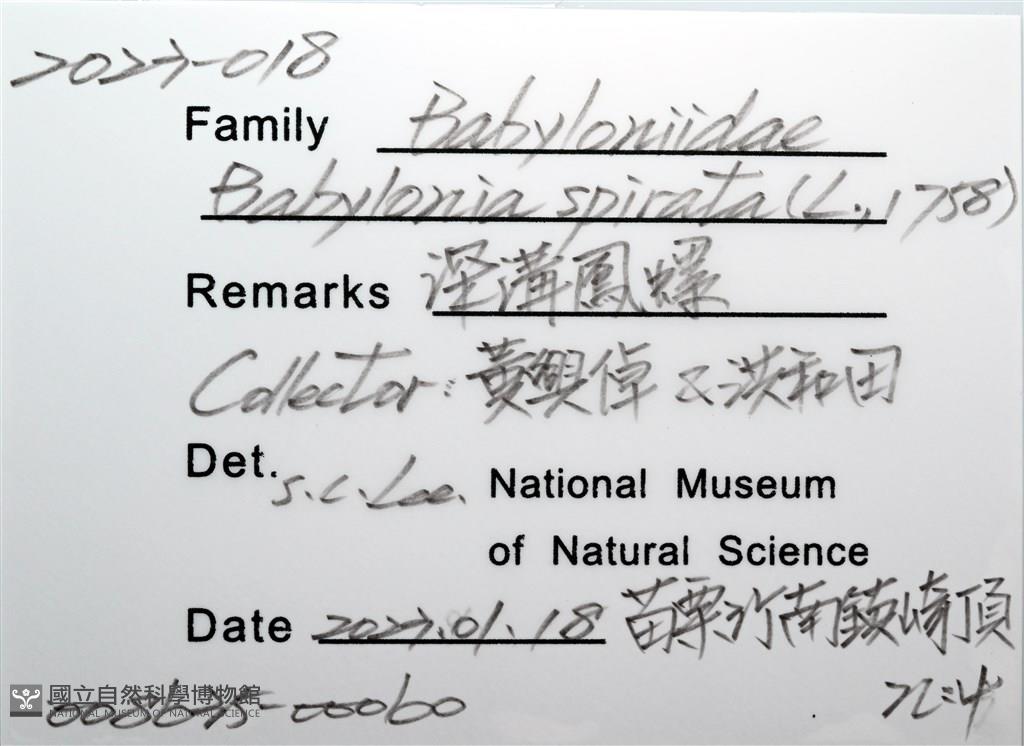 2022-018
Family Babyloniidae
Babylonia spirata (L., 1758)
Remarks 深溝鳳螺
Collector: 黃興倬 & 洪和田
Det. S. C. Lee. National Museum
of Natural Science
Date 2022.01.18 苗栗竹南鎮崎頂
國立自然科學博物館
NATIONAL MUSEUM OF NATURAL SCIENCE
-00060